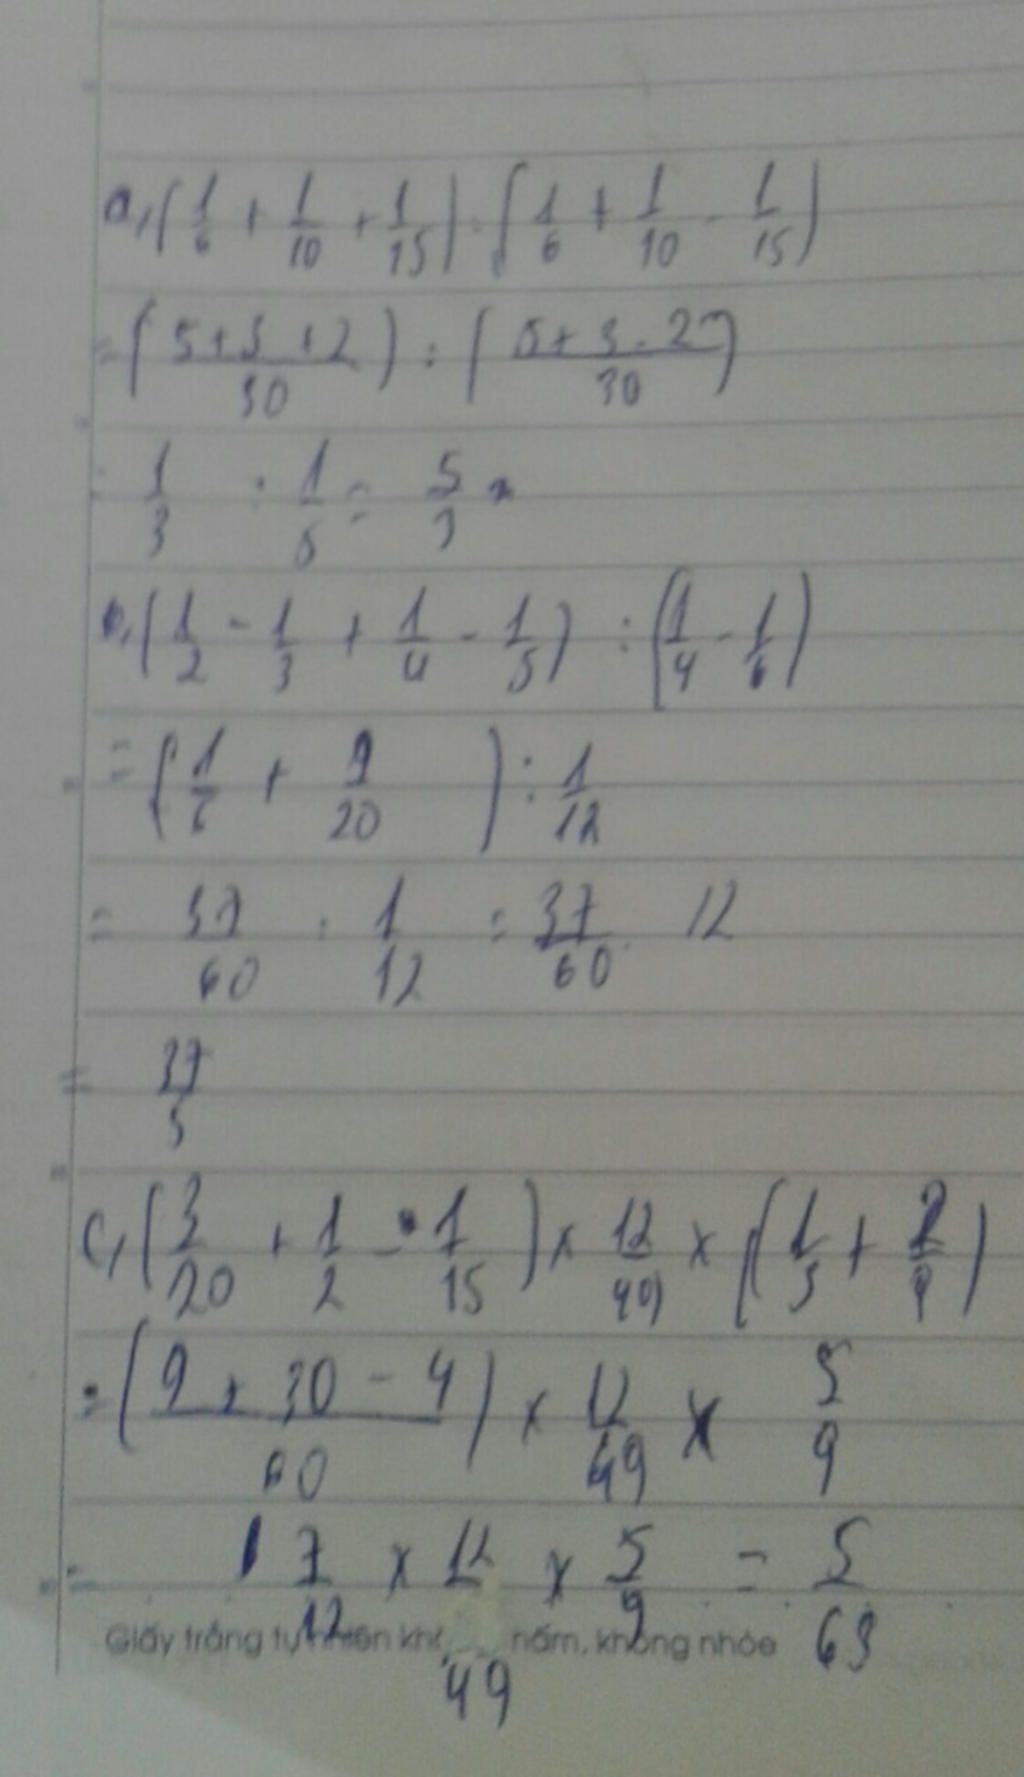 a, (1/6 + 1/10 + 1/15) : (1/6 + 1/10 - 1/15)
= (5+3+2/30) : (5+3-2/30)
= 1/3 : 1/5 = 5/3
b, (1/2 - 1/3 + 1/4 - 1/5) : (1/4 - 1/6)
= (1/6 + 9/20) : 1/12
= 37/60 : 1/12 = 37/60 . 12
= 37/5
c, (3/20 + 1/2 - 1/15) x 12/49 x (1/3 + 2/9)
= (9 + 30 - 4/60) x 12/49 x 5/9
= 7/12 x 12/49 x 5/9 = 5/63
Giấy trắng tự nhiên nấm, không nhòe